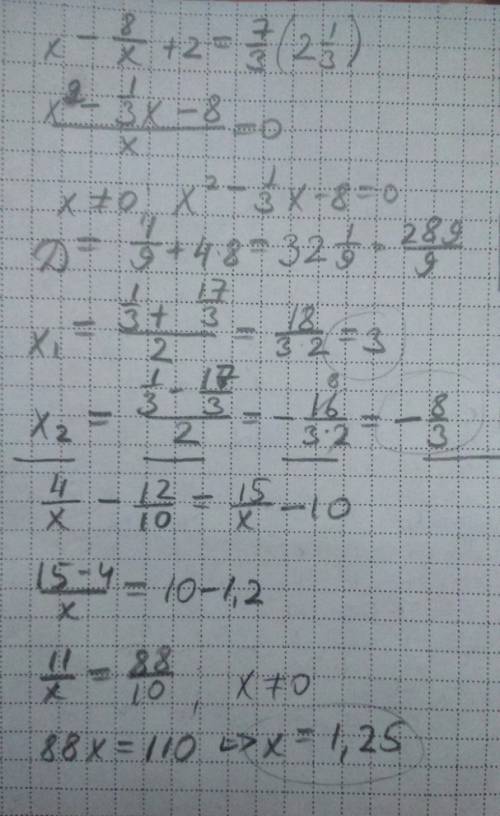 x - 8/x + 2 = 7/3 (2 1/3)
(x² - 1/3 x - 8)/x = 0
x ≠ 0, x² - 1/3 x - 8 = 0
D = 1/9 + 4·8 = 32 1/9 = 289/9
x₁ = (1/3 + 17/3)/2 = 18/(3·2) = 3
x₂ = (1/3 - 17/3)/2 = - 16/(3·2) = - 8/3
4/x - 12/10 = 15/x - 10
(15-4)/x = 10 - 1,2
11/x = 88/10, x ≠ 0
88x = 110 => x = 1,25